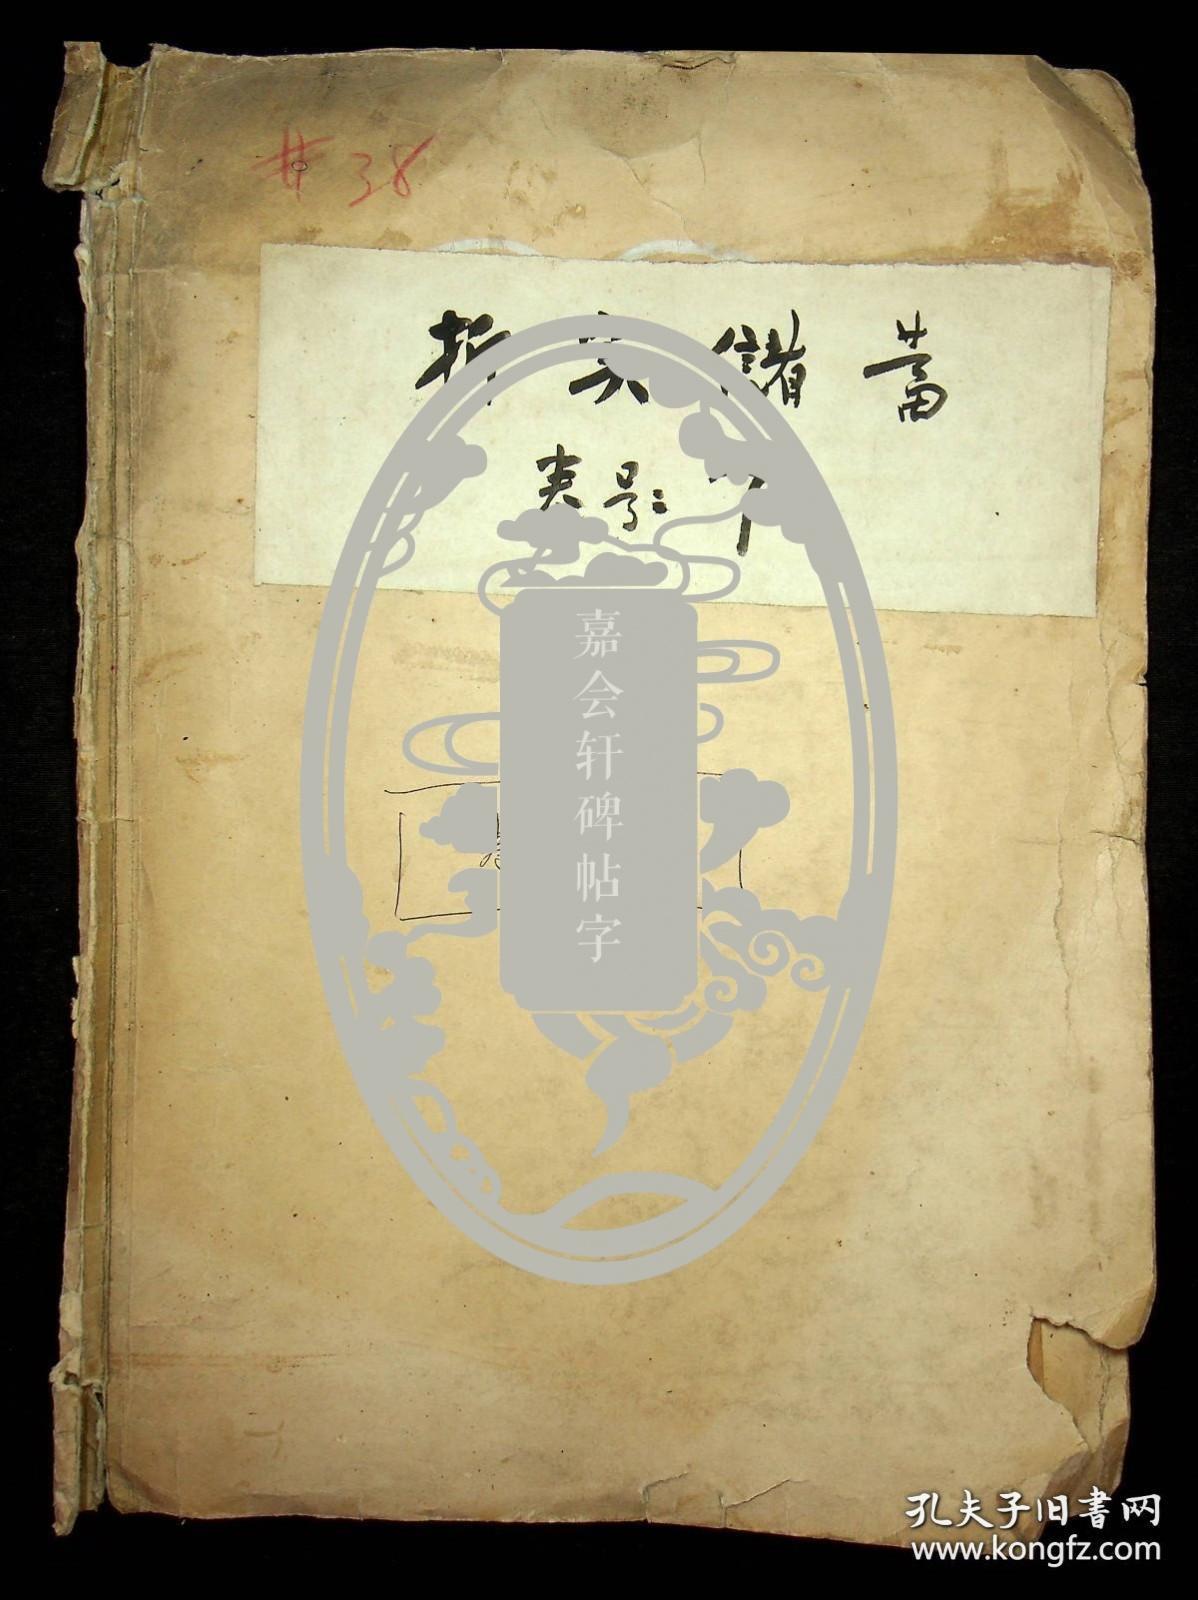 #38
折实儲蓄
嘉会轩碑帖字
孔夫子旧書网
www.kongfz.com